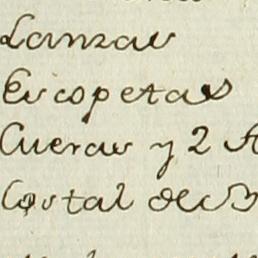 Lanzas
Escopetas
Cueras y 2 A
Costal de B